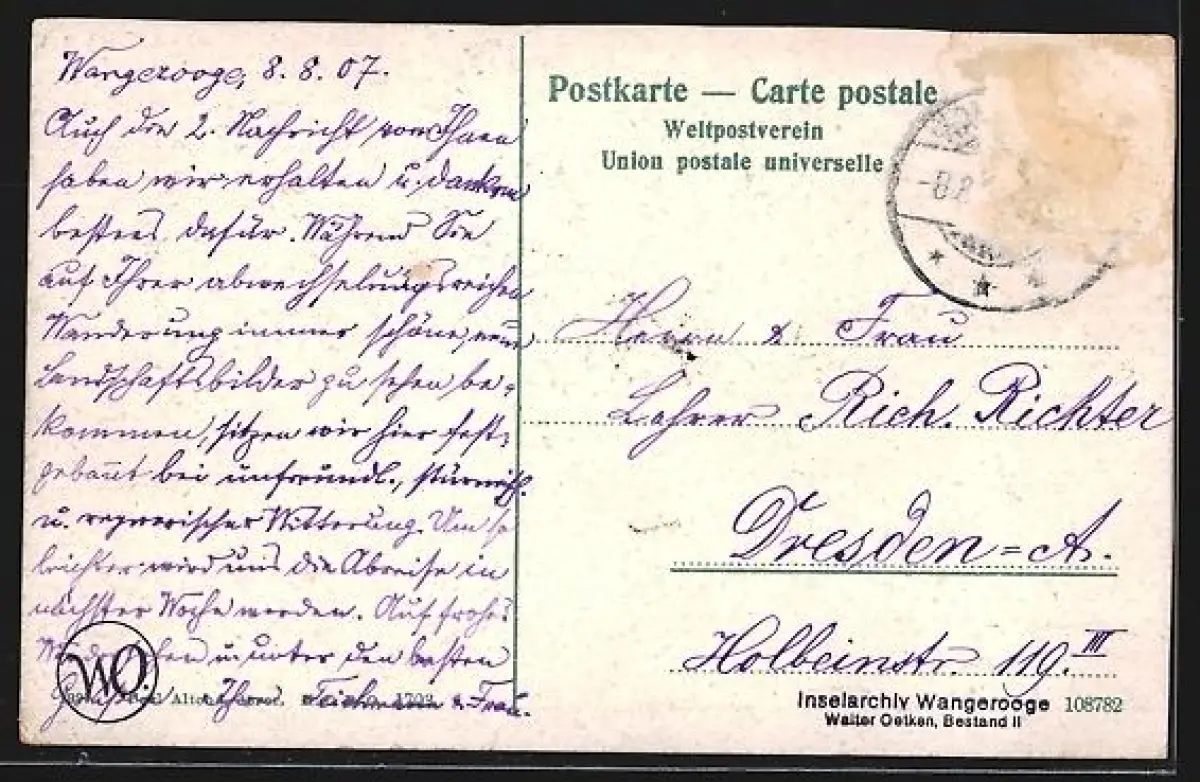 Wangerooge, 8. 8. 07.
Auch die 2. Nachricht von Ihnen
haben wir erhalten u. danken
bestens dafür. Während Sie
auf Ihrer abwechselungsreichen
Wanderung immer schöne, neue
Landschaftsbilder zu sehen be-
kommen, sitzen wir hier fest-
gebannt bei unfreundl., stürmisch.
u. regnerischer Witterung. Um so
leichter wird uns die Abreise in
nächster Woche werden. Auf frohes
Wiedersehen u. unter den besten
Ihre & Frau.
WO
1702
Postkarte — Carte postale
Weltpostverein
Union postale universelle
-8.8
Herrn & Frau
Lehrer Rich. Richter
Dresden=A.
Holbeinstr. 119. III
Inselarchiv Wangerooge 108782
Walter Oetken, Bestand II